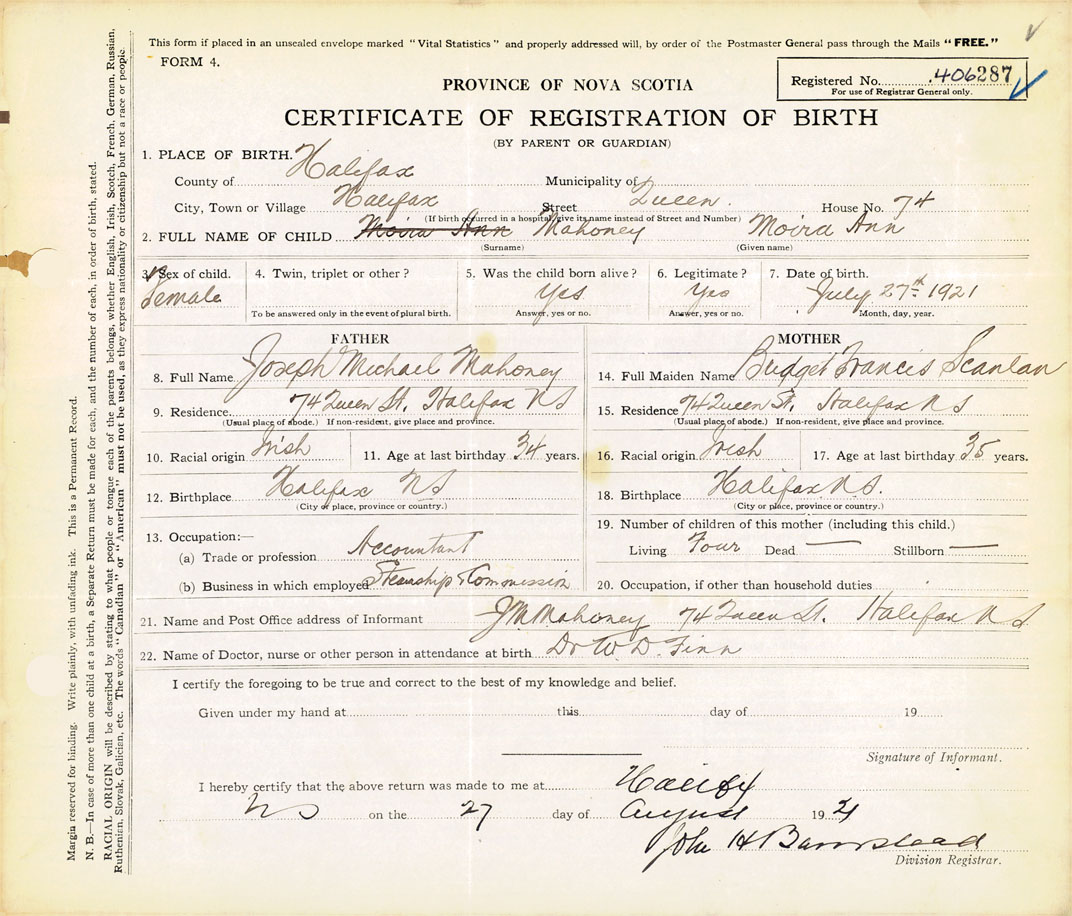 This form if placed in an unsealed envelope marked "Vital Statistics" and properly addressed will, by order of the Postmaster General pass through the Mails "FREE."
FORM 4.
Registered No. 406287
For use of Registrar General only.
PROVINCE OF NOVA SCOTIA
CERTIFICATE OF REGISTRATION OF BIRTH
(BY PARENT OR GUARDIAN)
1. PLACE OF BIRTH.
County of Halifax Municipality of
City, Town or Village Halifax Street Queen. House No. 74
(If birth occurred in a hospital, give its name instead of Street and Number)
2. FULL NAME OF CHILD Moira Ann Mahoney Moira Ann
(Surname) (Given name)
3. Sex of child. 4. Twin, triplet or other? 5. Was the child born alive? 6. Legitimate? 7. Date of birth.
Female Yes Yes July 27th 1921
To be answered only in the event of plural birth. Answer, yes or no. Answer, yes or no. Month, day, year.
FATHER
8. Full Name Joseph Michael Mahoney
9. Residence 74 Queen St. Halifax NS
(Usual place of abode.) If non-resident, give place and province.
10. Racial origin Irish 11. Age at last birthday 34 years.
12. Birthplace Halifax NS
(City or place, province or country.)
13. Occupation:—
(a) Trade or profession Accountant
(b) Business in which employed Steamship & Commission
MOTHER
14. Full Maiden Name Bridget Francis Scanlan
15. Residence 74 Queen St. Halifax NS
(Usual place of abode.) If non-resident, give place and province.
16. Racial origin Irish 17. Age at last birthday 35 years.
18. Birthplace Halifax N.S.
(City or place, province or country.)
19. Number of children of this mother (including this child.)
Living Four Dead — Stillborn —
20. Occupation, if other than household duties
21. Name and Post Office address of Informant J M Mahoney 74 Queen St. Halifax NS
22. Name of Doctor, nurse or other person in attendance at birth Dr W. D. Finn
I certify the foregoing to be true and correct to the best of my knowledge and belief.
Given under my hand at this day of 19
Signature of Informant.
I hereby certify that the above return was made to me at Halifax
NS on the 27 day of August 1921
John H Barnstead
Division Registrar.
Margin reserved for binding. Write plainly, with unfading ink. This is a Permanent Record.
N. B.—In case of more than one child at a birth, a Separate Return must be made for each, and the number of each, in order of birth, stated.
RACIAL ORIGIN will be described by stating to what people or tongue each of the parents belongs, whether English, Irish, Scotch, French, German, Russian,
Ruthenian, Slovak, Galician, etc. The words "Canadian" or "American" must not be used, as they express nationality or citizenship but not a race or people.